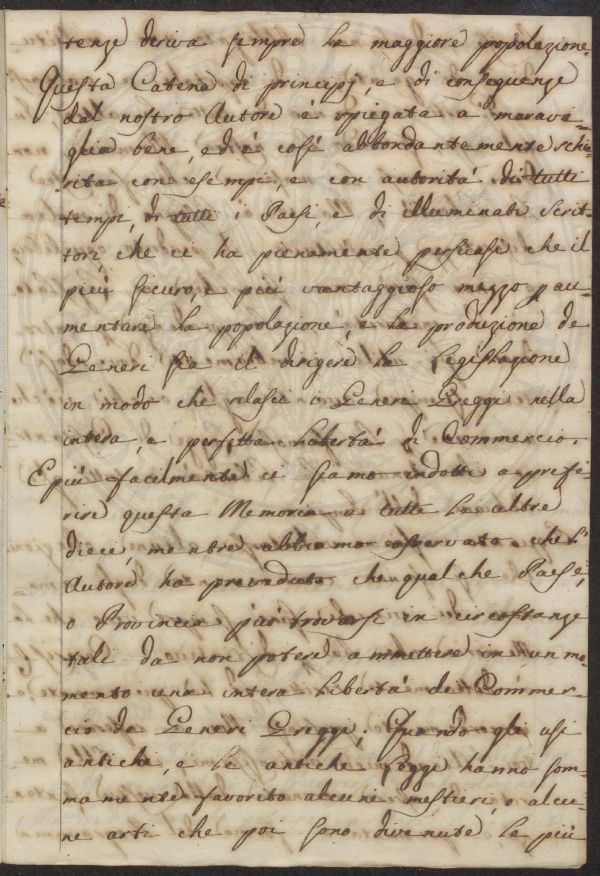 tenze deriva sempre la maggiore popolazione.
Questa Catena di principj, e di conseguenze
dal nostro Autore è spiegata a maravi-
glia bene, ed è così abbondantemente schia-
rita con esempi, e con autorità di tutti
tempi, di tutti i Paesi, e di illuminati Scrit-
tori, che ci ha pienamente persuasi che il
più sicuro, e più vantaggioso mezzo p au-
mentare la popolazione, e la produzione de
Generi sia il dirigere la Legislazione
in modo che rilasci i Generi Greggi nella
intera, e perfetta Libertà di Commercio.
E più facilmente ci siamo indotti a prefe-
rire questa Memoria a tutte le altre
dieci, mentre abbiamo osservato che l'
Autore ha preveduto che qualche Paese,
o Provincia può trovarsi in circostanze
tali da non potere ammettere in un mo-
mento una intera Libertà de Commer-
cio de Generi Greggi. Quando gli usi
antichi, e le antiche Leggi hanno som-
mamente favorito alcuni mestieri, o alcu-
ne arti che poi sono divenute le più